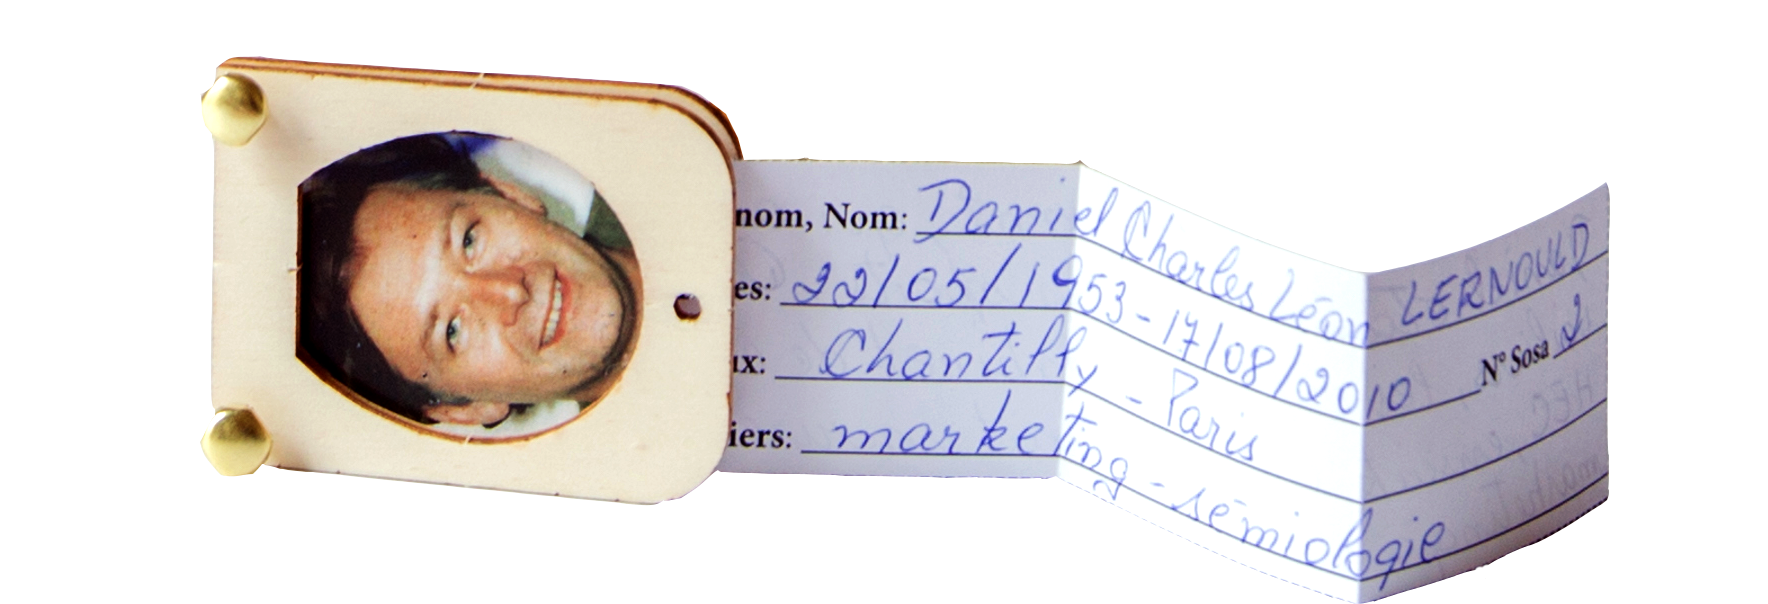 nom, Nom: Daniel Charles Léon LERNOULD
es: 22/05/1953 - 17/08/2010 N° Sosa 2
ux: Chantilly - Paris
iers: marketing - sémiologie